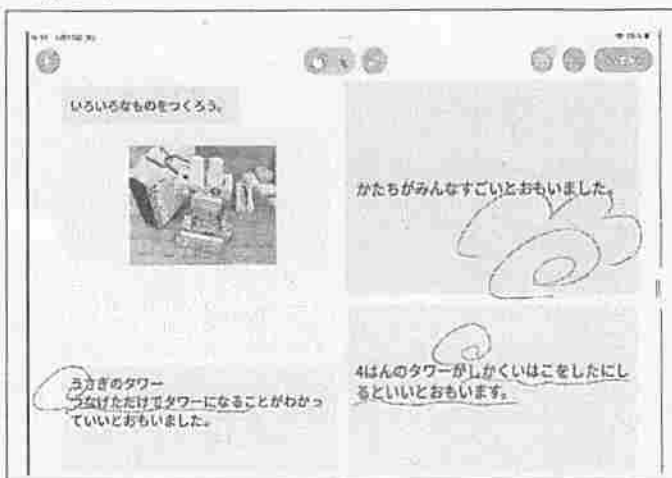 いろいろなものをつくろう。
かたちがみんなすごいとおもいました。
うさぎのタワー
つなげただけでタワーになることがわかっ
ていいとおもいました。
4はんのタワーがしかくいはこをしたにし
るといいとおもいます。